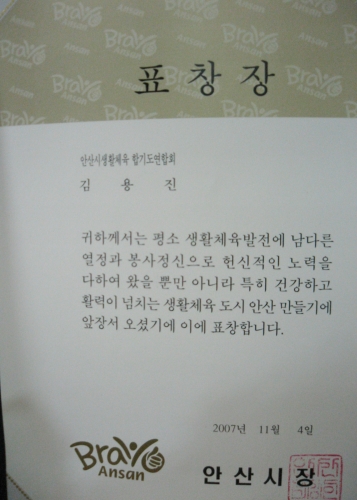 Bravo Ansan
표창장
안산시생활체육 합기도연합회
김 용 진
귀하께서는 평소 생활체육발전에 남다른
열정과 봉사정신으로 헌신적인 노력을
다하여 왔을 뿐만 아니라 특히 건강하고
활력이 넘치는 생활체육 도시 안산 만들기에
앞장서 오셨기에 이에 표창합니다.
2007년 11월 4일
Bravo
Ansan
안산시장